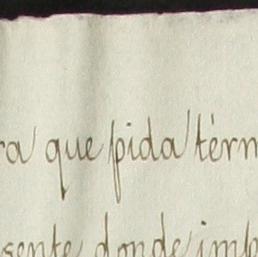 ra que pida térm
sente donde imp